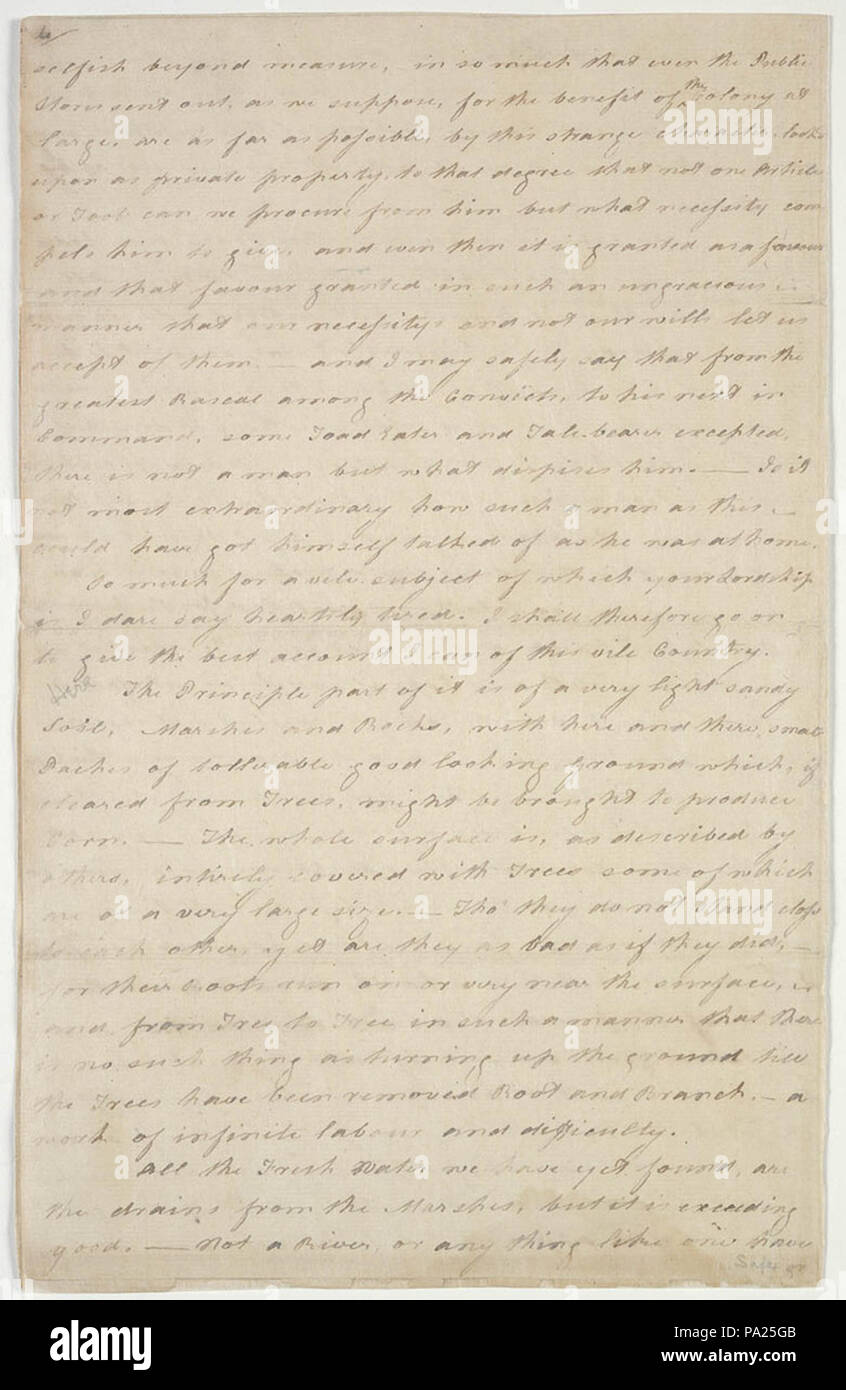 4/
selfish beyond measure, in so much that even the Public
Stores sent out, as we suppose, for the benefit of the Colony at
large, are as far as possible, by this strange character look'd
upon as private property, to that degree that not one Article
or Tool can we procure from him but what necessity com
pels him to give, and even then it is granted as a favour
and that favour granted in such an ungracious
manner that our necessitys and not our wills let us
accept of them. — and I may safely say that from the
greatest Rascal among the Convicts, to his next in
Command, some Toad Eater and Tale-bearer excepted,
there is not a man but what dispises him. — Is it
not most extraordinary how such a man as this
could have got himself talked of as he was at home.
So much for a vile subject of which your Lordship
is I dare say heartily tired. I shall therefore go on
to give the best account I can of this vile Country.
Here
The Principle part of it is of a very light sandy
Soil, Marshes and Rocks, with here and there, small
Paches of tollerable good looking Ground which, if
cleared from Trees, might be brought to produce
Corn. — The whole surface is, as described by
others, intirely covered with Trees some of which
are of a very large size. — Tho' they do not stand close
to each other, yet are they as bad as if they did, —
for their Roots run on or very near the surface,
and from Tree to Tree in such a manner that there
is no such thing as turning up the ground till
the Trees have been removed Root and Branch. — a
work of infinite labour and difficulty.
All the Fresh Water we have yet found, are
the drains from the Marshes, but it is exceeding
good. — Not a River, or any thing like one have
Safe
alamy
Image ID: PA25GB
www.alamy.com